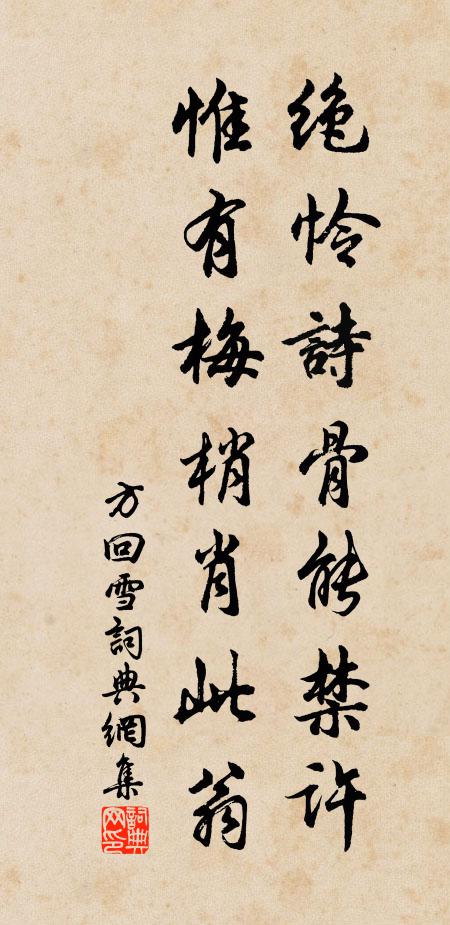 絶怜詩骨能禁許
惟有梅梢肖此翁
方回雪詞典網集
詞典網印